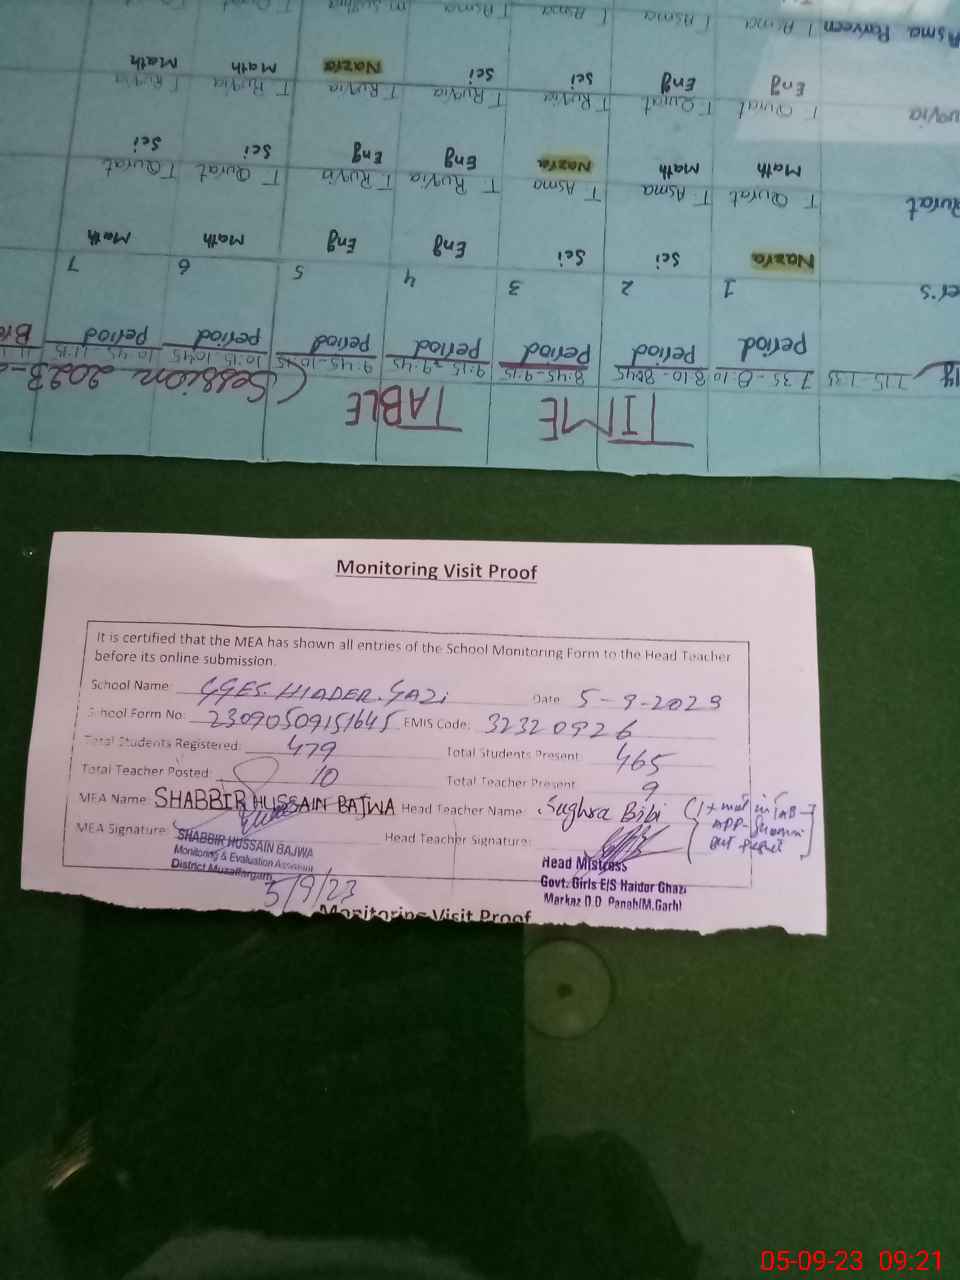 TIME TABLE (Session 2023-
7.15-1.35 7.35-8:10 8:10-8:45 8:45-9:15 9:15-9:45 9:45-10:15 10:15-10:45 10:45-11:15
period period period period period period period
1 2 3 4 5 6 7
Nazra Sci Sci Eng Eng Math Math
T Qurat T. Asma T Asma T Ruvia T Ruvia T Qurat T Qurat
Math Math Nazra Eng Eng Sci Sci
T. Qurat T Qurat T Ruvia T Ruvia T. Ruvia T Ruvia T Ruvia
Eng Eng Sci Sci Nazra Math Math
Asma Parveen T Asma T Asma T Asma T Asma
Monitoring Visit Proof
It is certified that the MEA has shown all entries of the School Monitoring Form to the Head Teacher
before its online submission.
School Name: GGES. HIADER. GAZI Date 5-9-2023
School Form No: 23090509151645 EMIS Code: 32320926
Total Students Registered: 479 Total Students Present: 465
Total Teacher Posted: 10 Total Teacher Present 9
MEA Name: SHABBIR HUSSAIN BAJWA Head Teacher Name: Sughra Bibi
MEA Signature: Head Teacher Signature:
SHABBIR HUSSAIN BAJWA
Monitoring & Evaluation Assistant
District Muzaffargarh
5/9/23
Head Mistress
Govt. Girls E/S Haidor Ghazi
Markaz D.D. Panah(M.Garh)
Monitoring Visit Proof
05-09-23 09:21